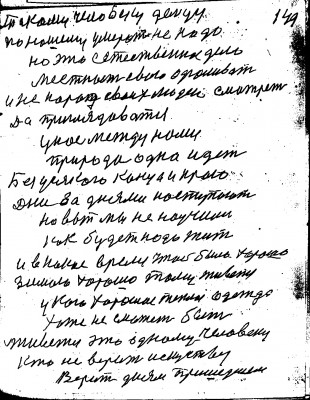 149
Такому человеку
по нашему умереть не надо
но это естественное дело
местность своего
и не народ своих людей смотреть
да приглядовать
у нас между нами
природа одна идет
Без усякого конца и краю
Дни за днями наступают
новые мы не научили
как будет надо жить
и в какое время чтоб было хорошо
Зимою хорошо тому живется
у кого хорошая теплая одежда
тоже не сможет быть
живется это одному человеку
Кто не верит искуству
Верит дням пришедшем